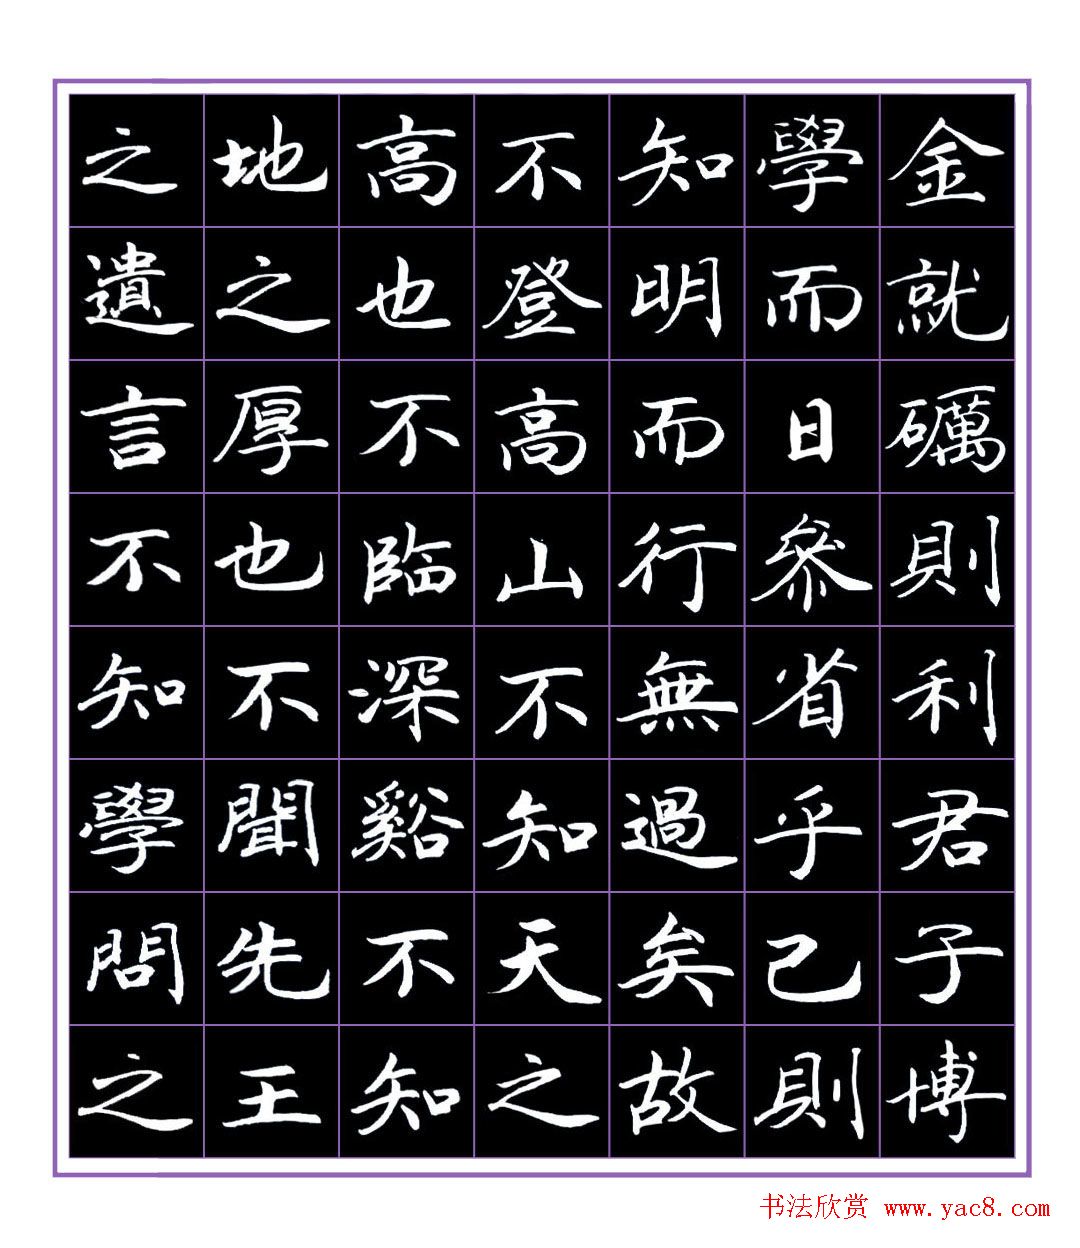 金就礪則利君子博
學而日參省乎己則
知明而行無過矣故
不登高山不知天之
高也不臨深谿不知
地之厚也不聞先王
之遺言不知學問之
书法欣赏 www.yac8.com